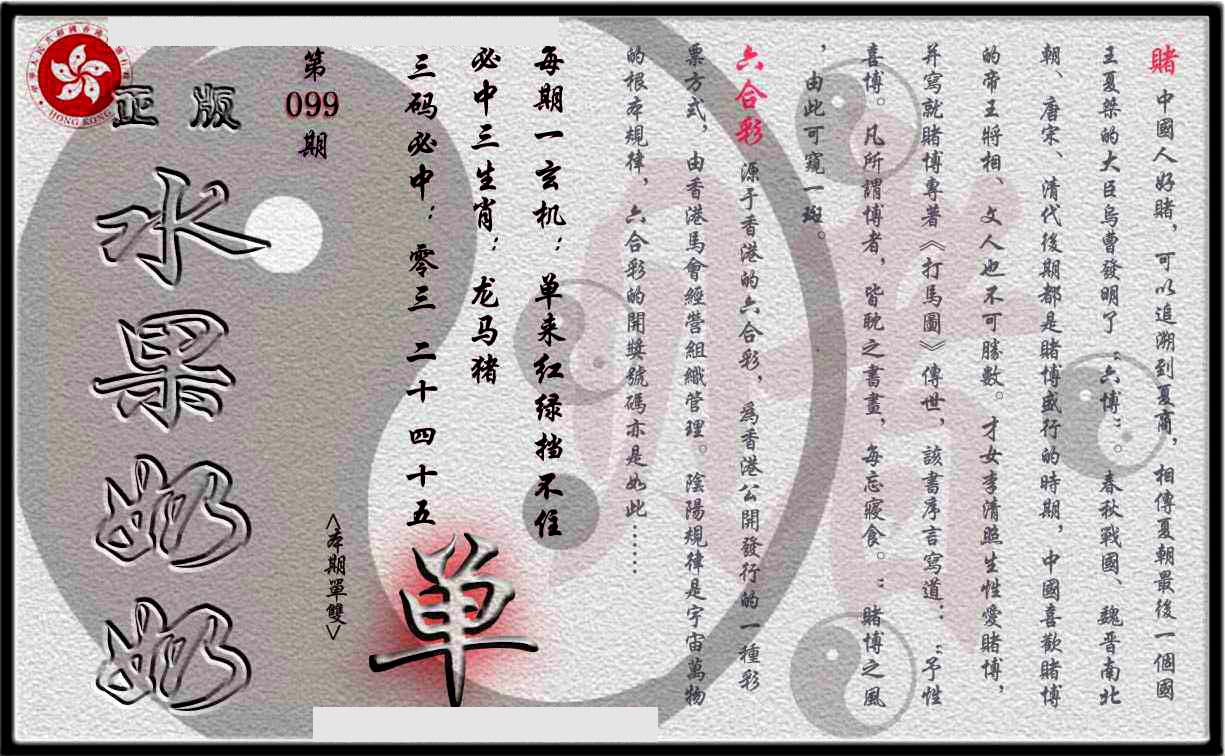 賭 中國人好賭，可以追溯到夏商，相傳夏朝最後一個國
王夏桀的大臣烏曹發明了“六博”。春秋戰國、魏晋南北
朝、唐宋、清代後期都是賭博盛行的時期，中國喜歡賭博
的帝王將相、文人也不可勝數。才女李清照生性愛賭博，
并寫就賭博專著《打馬圖》傳世，該書序言寫道：“予性
喜博。凡所謂博者，皆耽之書畫，每忘寢食。”賭博之風
，由此可窺一斑。
六合彩 源于香港的六合彩，爲香港公開發行的一種彩
票方式，由香港馬會經營組織管理。陰陽規律是宇宙萬物
的根本規律，六合彩的開獎號碼亦是如此……
每期一玄机：单来红绿挡不住
必中三生肖：龙马猪
三码必中：零三 二十 四十五
单
<本期單雙>
第
099
期
正版
水果奶奶
HONG KONG